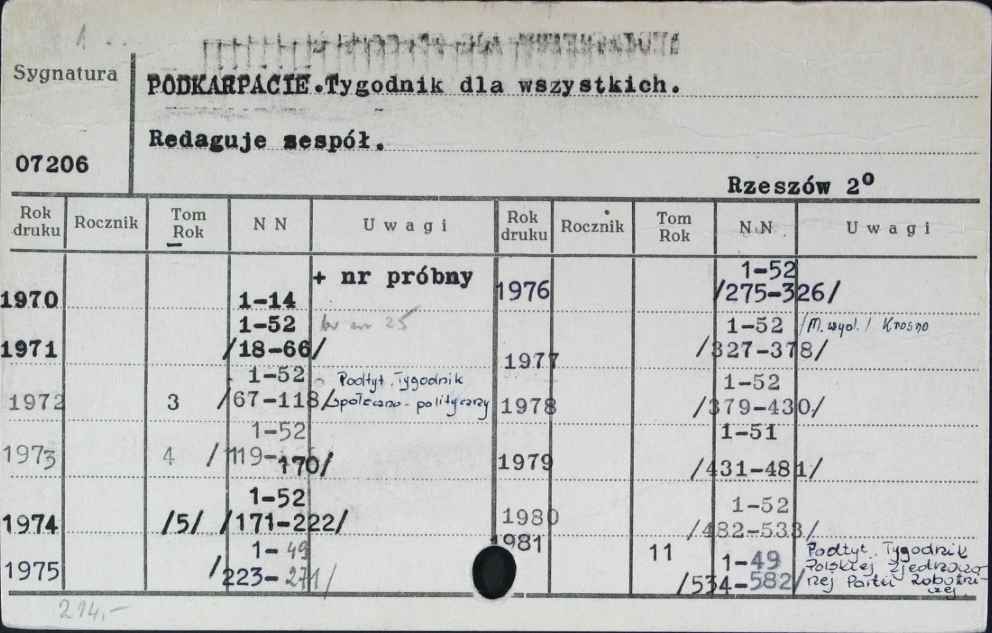 1
Sygnatura
PODKARPACIE.Tygodnik dla wszystkich.
Redaguje zespół.
07206
Rzeszów 2º
Rok druku Rocznik Tom Rok N N Uwagi Rok druku Rocznik Tom Rok N N Uwagi
+ nr próbny
1970 1-14
1-52
1971 /18-66/
1-52 Podtyt. Tygodnik
1972 3 /67-118/ społeczno-polityczny
1-52
1973 4 /119-170/
1-52
1974 /5/ /171-222/
1-49
1975 /223-271/
1-52
1976 /275-326/
1-52 /M. wyd./ Krosno
1977 /327-378/
1-52
1978 /379-430/
1-51
1979 /431-481/
1-52
1980 /482-533/
1981 11 1-49 Podtyt. Tygodnik
/534-582/ Polskiej Zjednoczo-
nej Partii Robotni-
czej.
214,-